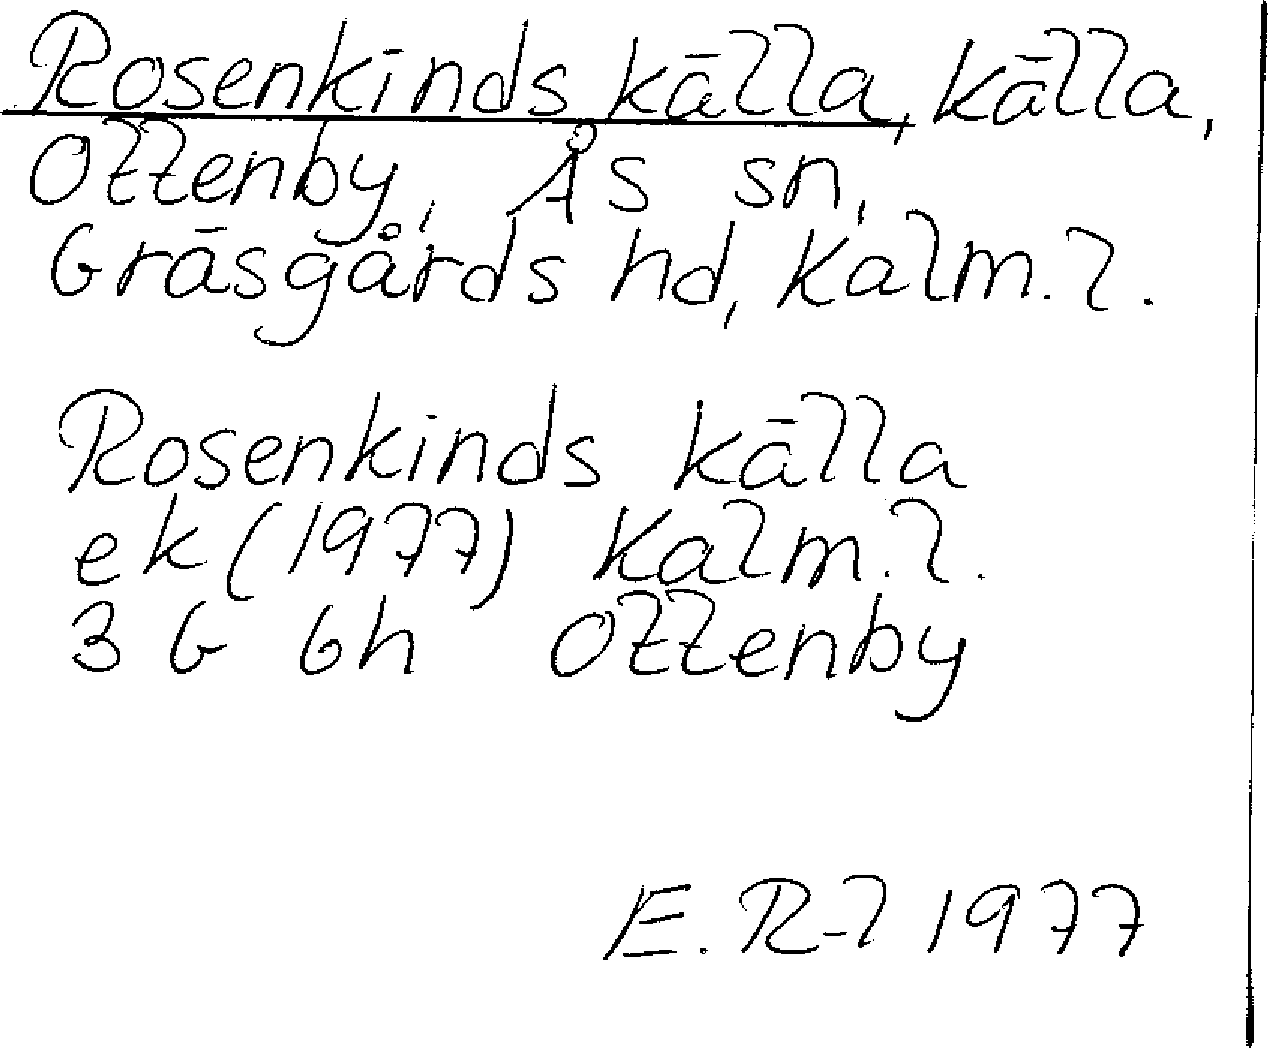 Rosenkinds källa, källa,
Ottenby, Ås sn,
Gräsgårds hd, Kalm. l.
Rosenkinds källa
ek (1977) Kalm. l.
3 G 6h Ottenby
E. R-l 1977